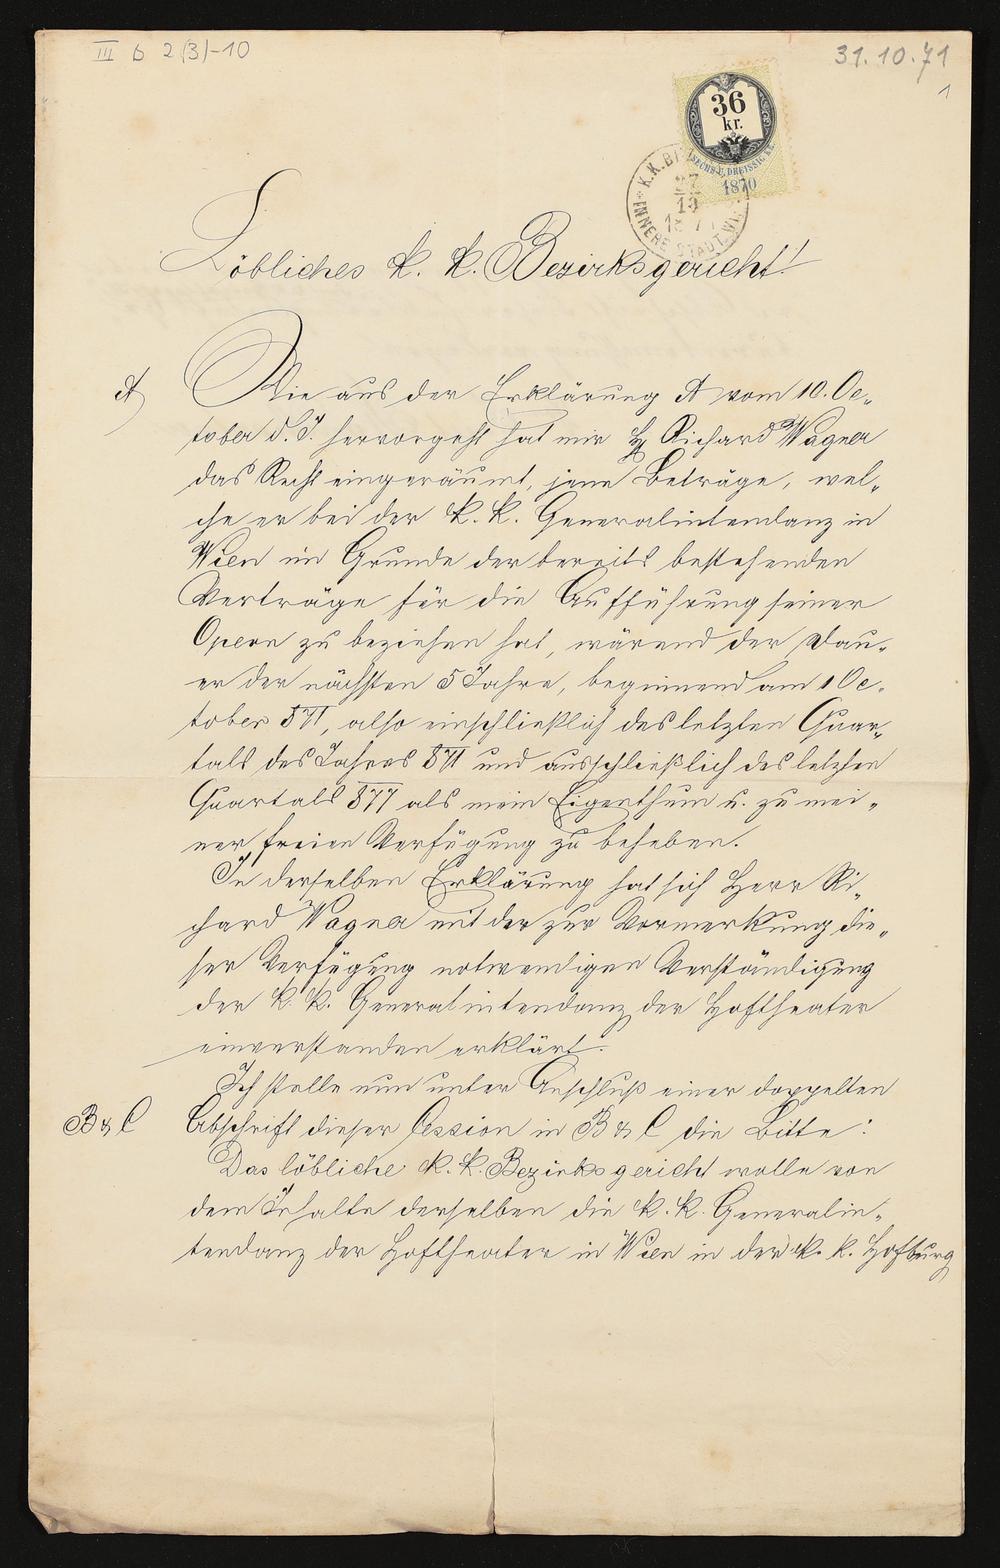 III b 2(3)-10
31.10.71
1
36
kr.
SECHS U. DREISSIG KR.
1870
INNERE STADT WIEN
Löbliches k. k. Bezirksgericht!
A
Wie aus der Erklärung A vom 10. Oc„
tober d. J. hervorgeht hat mir H Richard Wagner
das Recht eingeräumt, jene Beträge, wel„
che er bei der k. k. Generalintendanz in
Wien im Grunde der bereits bestehenden
Verträge für die Aufführung seiner
Opern zu beziehen hat, wärend der Dau„
er der nächsten 5 Jahre, beginnend am 1 Oc„
tober 871, also einschließlich des letzten Quar„
tals des Jahres 871 und ausschließlich des letzten
Quartals 877 als mein Eigenthum u. zu mei„
ner freien Verfügung zu beheben.
In derselben Erklärung hat sich Herr Ri„
chard Wagner mit der zur Vormerkung die„
ser Verfügung notwendigen Verständigung
der k. k. Generalintendanz der Hoftheater
einverstanden erklärt.
Ich stelle nun unter Anschluß einer doppelten
B & C
Abschrift dieser Cession in B & C die Bitte:
Das löbliche k. k. Bezirksgericht wolle von
dem Inhalte derselben die k. k. Generalin„
tendanz der Hoftheater in Wien in der k. k. Hofburg